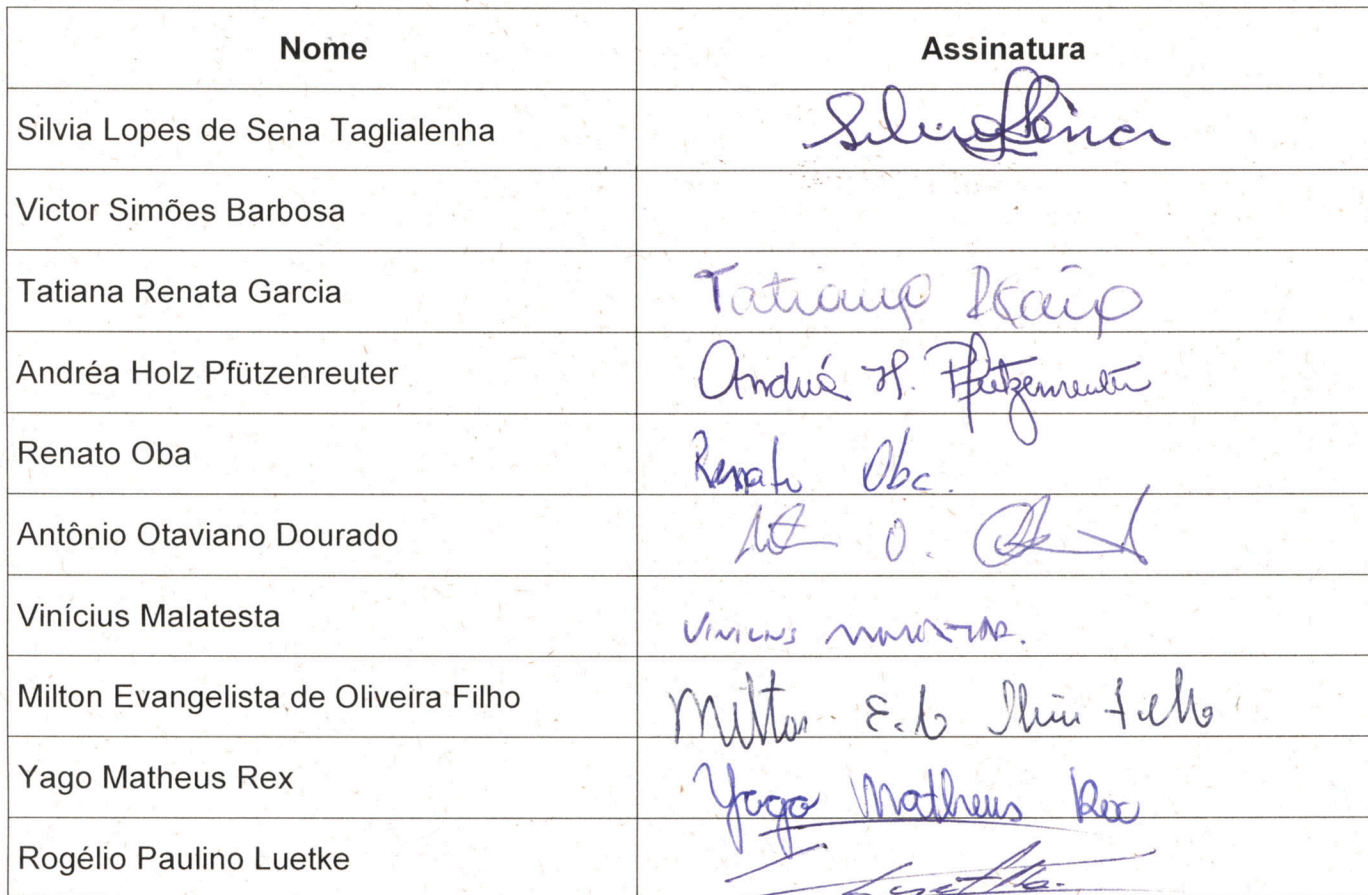 Nome Assinatura
Silvia Lopes de Sena Taglialenha
Victor Simões Barbosa
Tatiana Renata Garcia Tatiana
Andréa Holz Pfützenreuter Andréa H. Pfützenreuter
Renato Oba Renato Oba.
Antônio Otaviano Dourado O.
Vinícius Malatesta
Milton Evangelista de Oliveira Filho Milton E. d Filho
Yago Matheus Rex Yago Matheus Rex
Rogélio Paulino Luetke